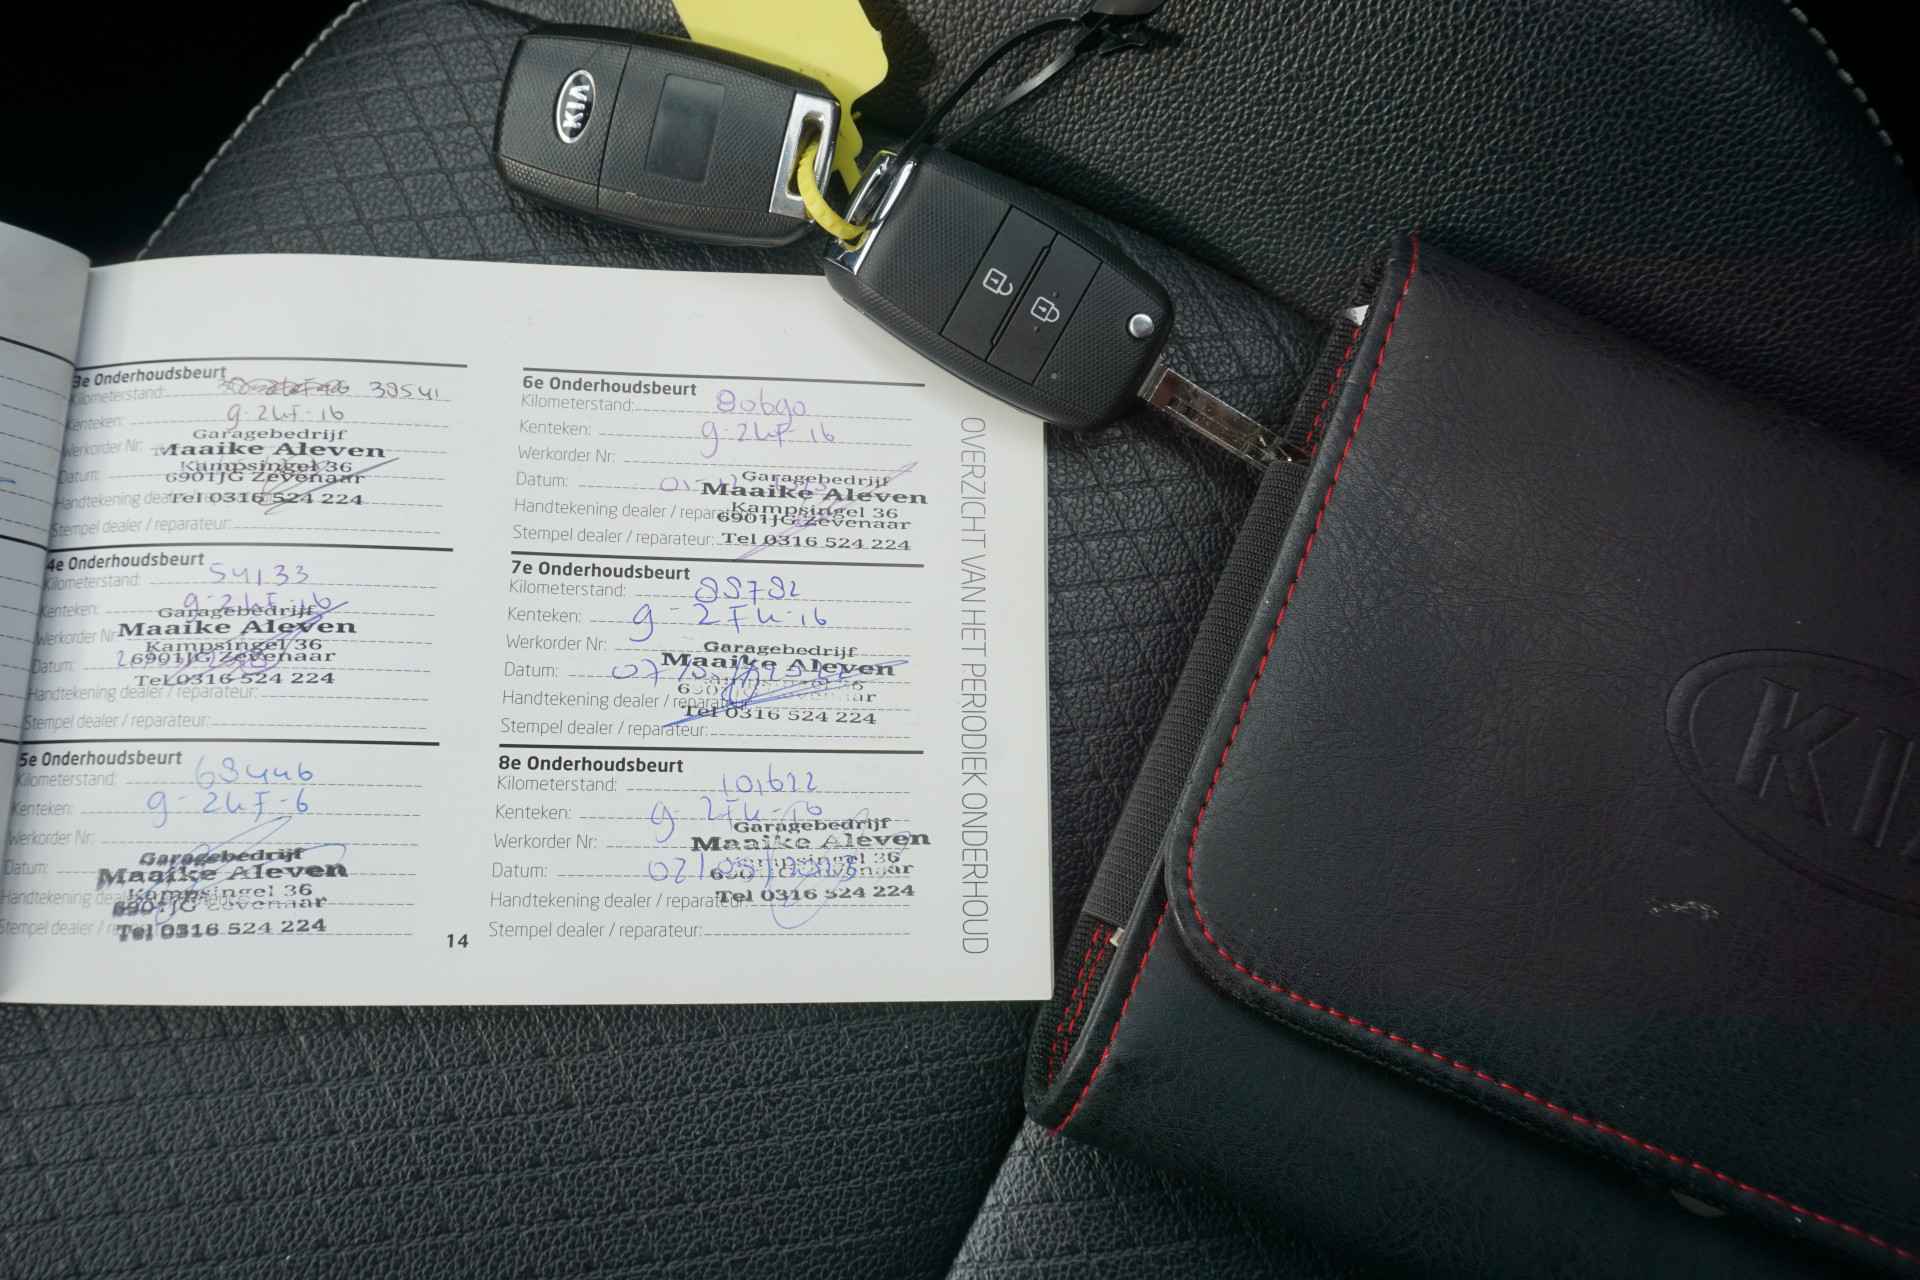 KIA
3e Onderhoudsbeurt
Kilometerstand: 38541
Kenteken: g-2kF-16
Werkorder Nr:
Garagebedrijf
Maaike Aleven
Kampsingel 36
6901JG Zevenaar
Tel 0316 524 224
Datum:
Handtekening dealer / reparateur:
Stempel dealer / reparateur:
4e Onderhoudsbeurt
Kilometerstand: 54133
Kenteken: g-2kF-16
Werkorder Nr:
Garagebedrijf
Maaike Aleven
Kampsingel 36
6901JG Zevenaar
Tel 0316 524 224
Datum:
Handtekening dealer / reparateur:
Stempel dealer / reparateur:
5e Onderhoudsbeurt
Kilometerstand: 68446
Kenteken: g-2kF-6
Werkorder Nr:
Garagebedrijf
Maaike Aleven
Kampsingel 36
6901JG Zevenaar
Tel 0316 524 224
Datum:
Handtekening dealer
Stempel dealer
14
6e Onderhoudsbeurt
Kilometerstand: 80690
Kenteken: g-2kF-16
Werkorder Nr:
Datum:
Garagebedrijf
Maaike Aleven
Kampsingel 36
6901JG Zevenaar
Tel 0316 524 224
Handtekening dealer / reparateur:
Stempel dealer / reparateur:
7e Onderhoudsbeurt
Kilometerstand: 88782
Kenteken: g-2Fk-16
Werkorder Nr:
Garagebedrijf
Maaike Aleven
Tel 0316 524 224
Datum:
Handtekening dealer / reparateur:
Stempel dealer / reparateur:
8e Onderhoudsbeurt
Kilometerstand: 101622
Kenteken: g-2Fk-16
Werkorder Nr:
Garagebedrijf
Maaike Aleven
Kampsingel 36
6901JG Zevenaar
Tel 0316 524 224
Datum:
Handtekening dealer / reparateur:
Stempel dealer / reparateur:
OVERZICHT VAN HET PERIODIEK ONDERHOUD
KI